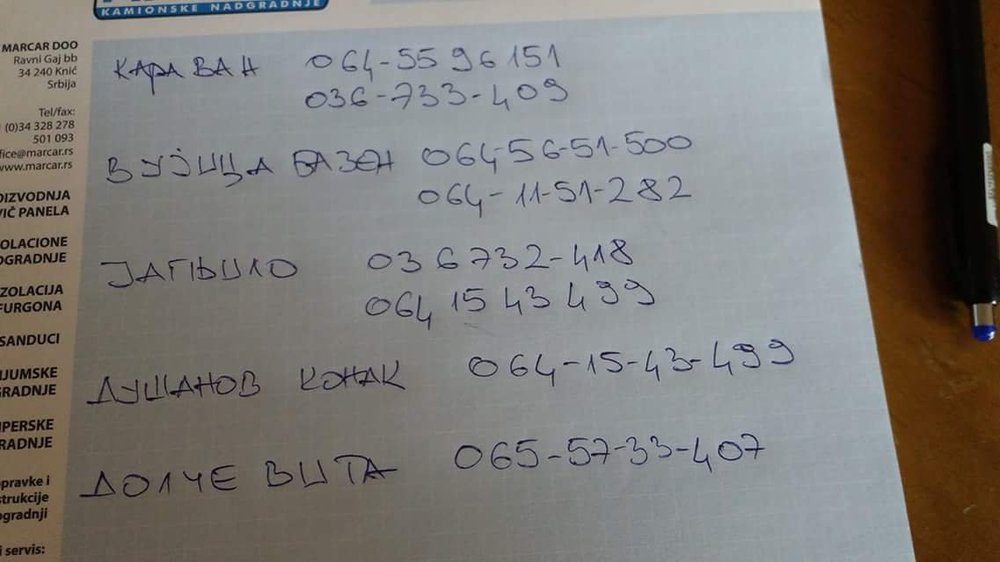 KAMIONSKE NADGRADNJE
MARCAR DOO
Ravni Gaj bb
34 240 Knić
Srbija
Tel/fax:
(0)34 328 278
501 093
fice@marcar.rs
www.marcar.rs
OIZVODNJA
VIČ PANELA
OLACIONE
OGRADNJE
ZOLACIJA
FURGONA
SANDUCI
IJUMSKE
GRADNJE
IPERSKE
RADNJE
pravke i
strukcije
ogradnji
i servis:
КАРАВАН 064-55 96 151
036-733-409
ВУЈИЦА БАЗЕН 064-56-51-500
064-11-51-282
ЈАГЊИЛО 036 732-418
064 15 43 499
ДУШАНОВ КОНАК 064-15-43-499
ДОЛЧЕ ВИТА 065-57-33-407